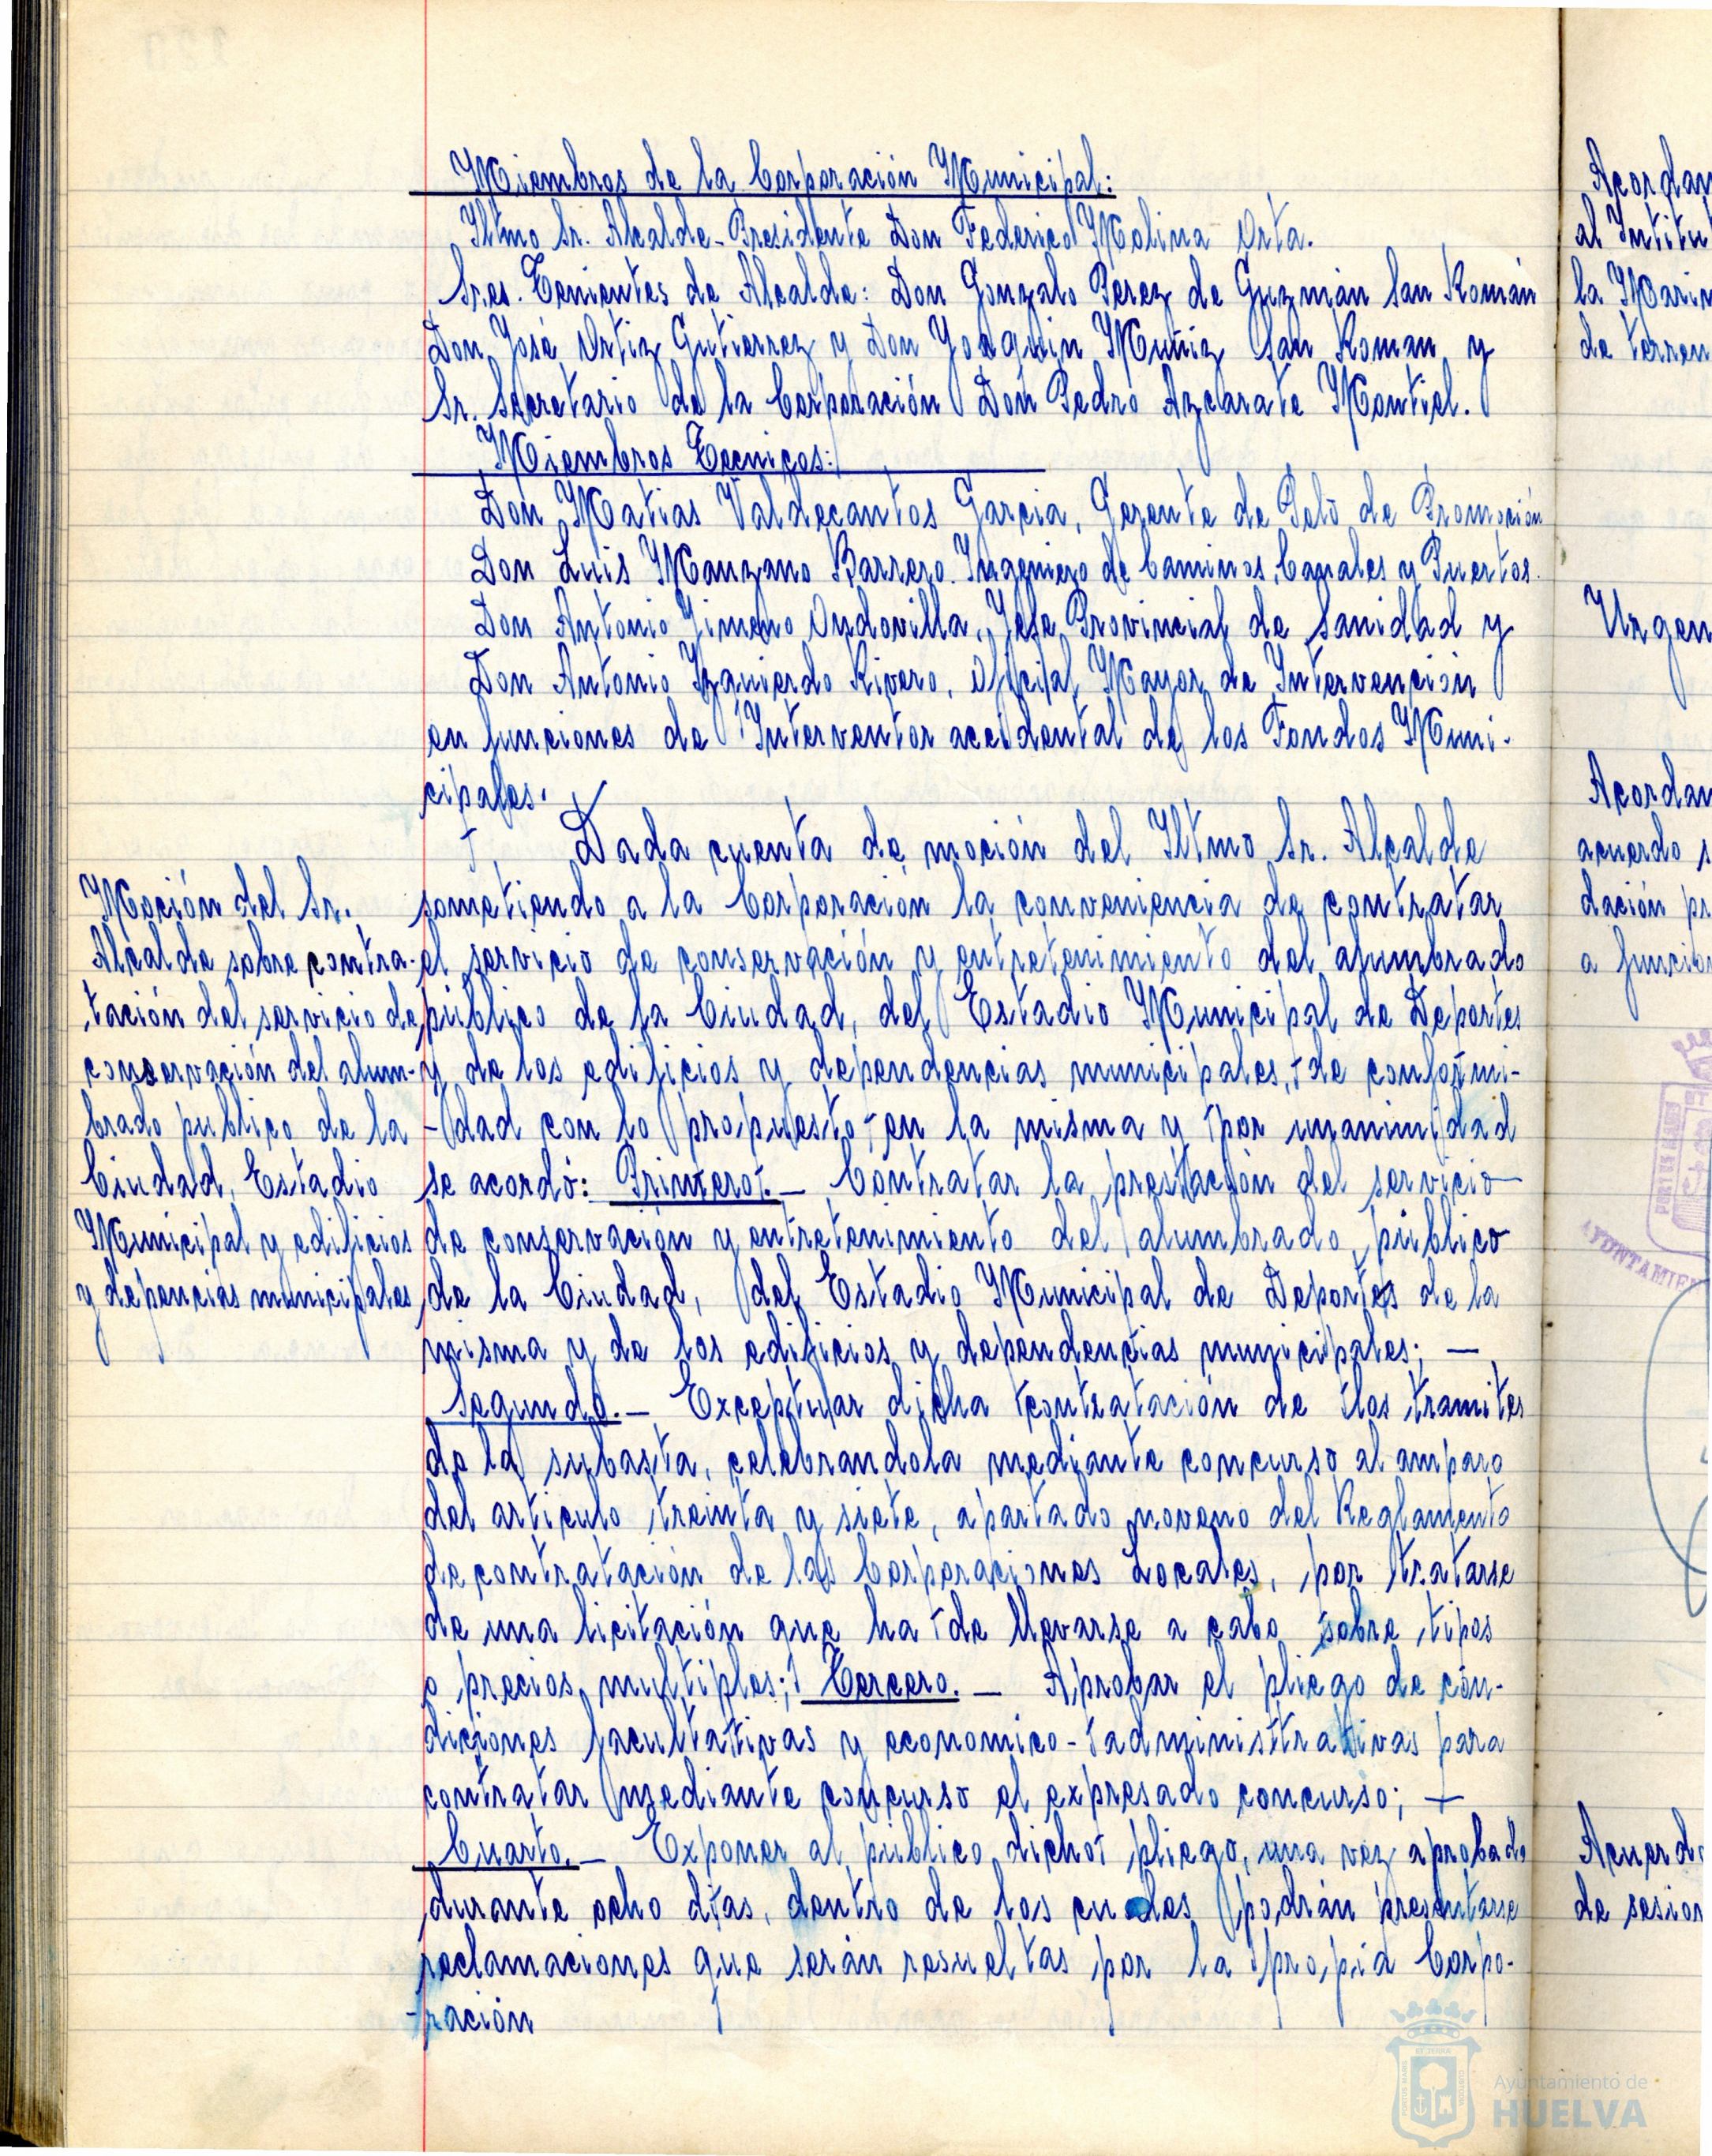 Miembros de la Corporación Municipal:
Iltmo Sr. Alcalde-Presidente Don Federico Molina Orta.
Sres. Tenientes de Alcalde: Don Gonzalo Perez de Guzmán San Román
Don José Ortiz Gutierrez y Don Joaquin Muñiz San Roman y
Sr. Secretario de la Corporación Don Pedro Azcarate Montiel.
Miembros Tecnicos:
Don Matias Valdecantos Garcia, Gerente de Polo de Promoción
Don Luis Manzano Barrero. Ingeniero de Caminos, Canales y Puertos.
Don Antonio Jimeno Ondovilla, Jefe Provincial de Sanidad y
Don Antonio Izquierdo Rivero, Oficial Mayor de Intervención
en funciones de Interventor accidental de los Fondos Muni-
cipales.
Dada cuenta de moción del Iltmo Sr. Alcalde
sometiendo a la Corporación la conveniencia de contratar
el servicio de conservación y entretenimiento del alumbrado
público de la Ciudad, del Estadio Municipal de Deportes
y de los edificios y dependencias municipales, de conformi-
-dad con lo propuesto en la misma y por unanimidad
se acordó: Primero.- Contratar la prestación del servicio
de conservación y entretenimiento del alumbrado público
de la Ciudad, del Estadio Municipal de Deportes de la
misma y de los edificios y dependencias municipales; —
Segundo.- Exceptuar dicha contratación de los tramites
de la subasta, celebrandola mediante concurso al amparo
del articulo treinta y siete, apartado noveno del Reglamento
de contratación de las Corporaciones Locales, por tratarse
de una licitación que ha de llevarse a cabo sobre tipos
o precios multiples; Tercero.- Aprobar el pliego de con-
diciones facultativas y economico-administrativas para
contratar mediante concurso el expresado concurso; —
Cuarto.- Exponer al público dicho pliego, una vez aprobado
durante ocho dias, dentro de los cuales podrán presentarse
reclamaciones que serán resueltas por la propia Corpo-
-ración
Moción del Sr.
Alcalde sobre contra-
tación del servicio de
conservación del alum-
brado publico de la
Ciudad, Estadio
Municipal y edificios
y depencias municipales
Acordan
al Intitut
la Marin
de terren
Urgen
Acordan
acuerdo s
dación pr
a funcion
AYUNTAMIE
Acuerdo
de sesion
Ayuntamiento de
HUELVA